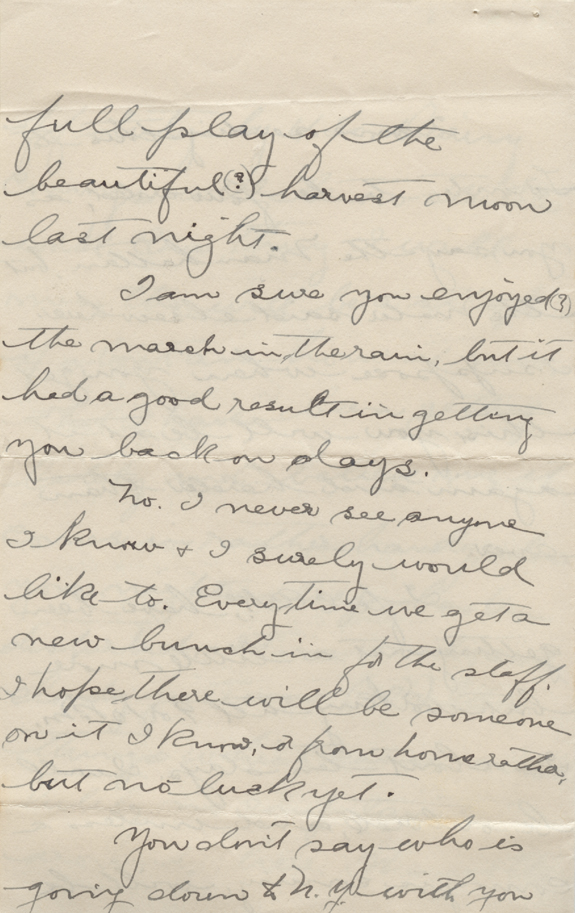 full play of the
beautiful(?) harvest moon
last night.
I am sure you enjoyed(?)
the march in the rain, but it
had a good result in getting
you back on days.
No. I never see anyone
I know + I surely would
like to. Every time we get a
new bunch in for the staff.
I hope there will be someone
on it I know, or from home rather,
but no luck yet.
You don't say who is
going down to N.Y. with you